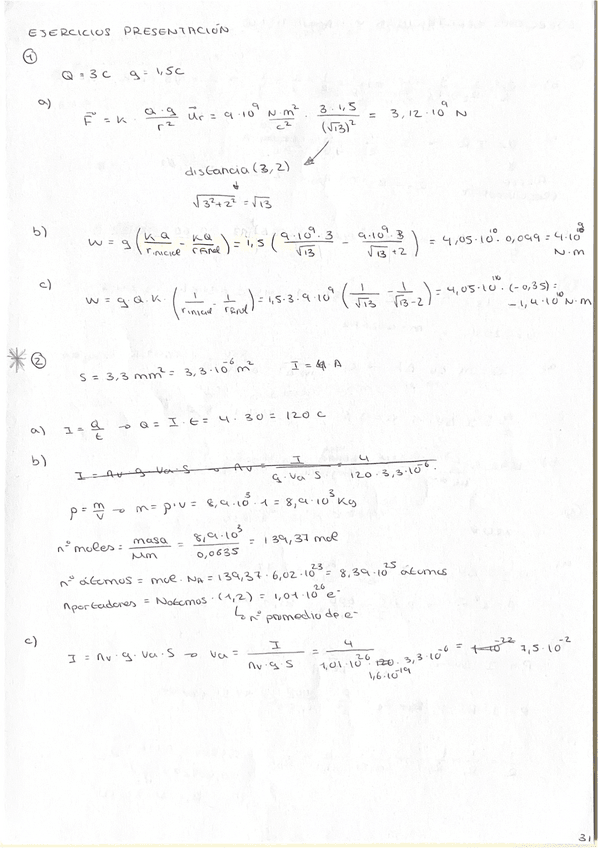 EJERCICIOS PRESENTACIÓN
①
Q = 3 C   q = 1,5 C
a) F⃗ = K · (Q · q)/r² u⃗r = 9·10⁹ N·m²/C² · (3·1,5)/(√13)² = 3,12·10⁹ N
distancia (3,2)
↓
√3²+2² = √13
b) W = q (KQ/rinicial - KQ/rfinal) = 1,5 (9·10⁹·3/√13 - 9·10⁹·3/(√13+2)) = 4,05·10¹⁰ · 0,099 = 4·10⁹
N·m
c) W = q·Q·K· (1/rinicial - 1/rfinal) = 1,5·3·9·10⁹ (1/√13 - 1/(√13-2)) = 4,05·10¹⁰·(-0,35) =
-1,4·10¹⁰ N·m
* ②
S = 3,3 mm² = 3,3·10⁻⁶ m²   I = 4 A
a) I = Q/t → Q = I · t = 4 · 30 = 120 C
b) I = nv · q · va · S → nv = I/(q · va · S) = 4/(120 · 3,3·10⁻⁶)
ρ = m/v → m = ρ·v = 8,9·10³ · 1 = 8,9·10³ Kg
nº moles = masa/Mm = 8,9·10³/0,0635 = 139,37 mol
nº átomos = mol · NA = 139,37 · 6,02·10²³ = 8,39·10²⁵ átomos
nportadores = Nátomos · (1,2) = 1,01·10²⁶ e⁻
↳ nº promedio de e⁻
c) I = nv · q · va · S → va = I/(nv · q · S) = 4/(1,01·10²⁶ · 120 · 3,3·10⁻⁶) = 1·10⁻²² 7,5·10⁻²
1,6·10⁻¹⁹
31